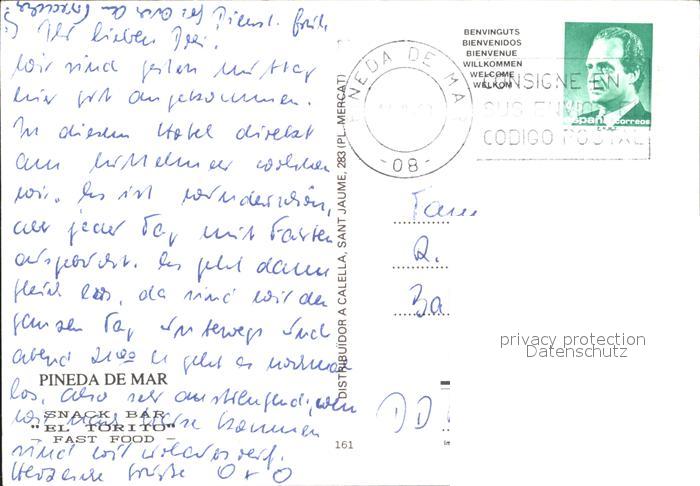 Ihr lieben Drei.
wir sind gestern mittag
hier gut angekommen.
In diesem Hotel direkt
am Mittelmeer wohnen
wir. Es ist wunderschön,
aber jeder Tag mit Fahrten
ausgebucht. Es geht dann
gleich los, da sind wir den
ganzen Tag unterwegs und
abend 21.00 geht es nochmal
los, also sehr anstrengend, wenn
wir nach Hause kommen
sind wir
Herzliche Grüße O + O
PINEDA DE MAR
SNACK BAR
"EL TORITO"
- FAST FOOD -
DISTRIBUÏDOR A CALELLA, SANT JAUME, 283 (PL. MERCAT)
161
BENVINGUTS
BIENVENIDOS
BIENVENUE
WILLKOMMEN
WELCOME
WELKOM
PINEDA DE MAR
- 08 -
CONSIGNE EN
SUS ENVIOS
CODIGO POSTAL
España correos
Fam
R.
Ba
DD
privacy protection
Datenschutz